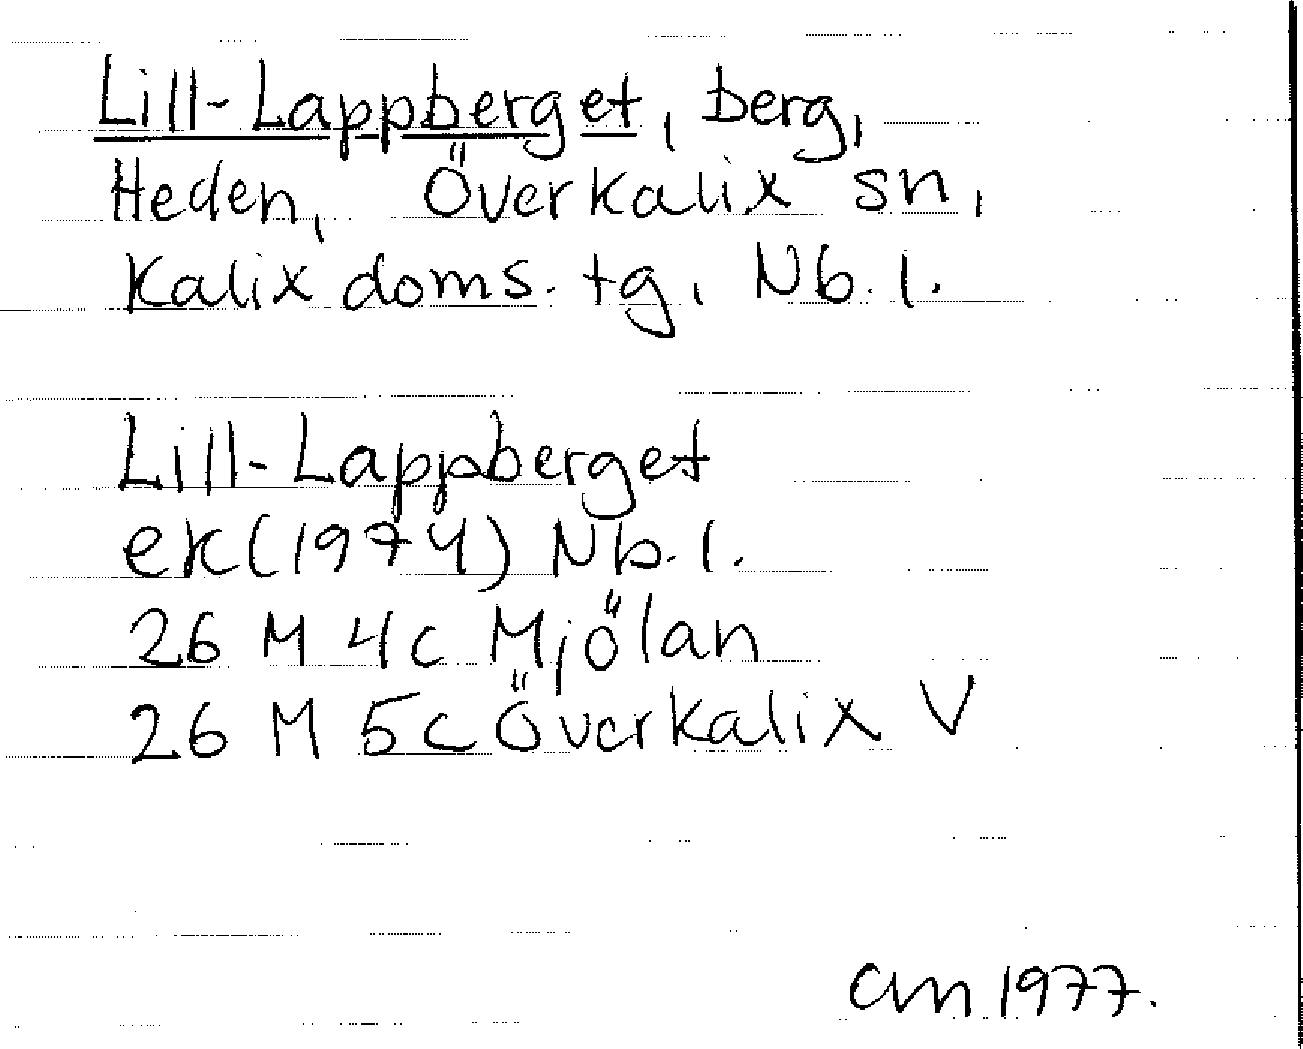 Lill-Lappberget, berg,
Heden, Överkalix sn,
Kalix doms. tg, Nb. l.
Lill-Lappberget
ek (1974) Nb. l.
26 M 4c Mjölan
26 M 5c Överkalix V
1977.